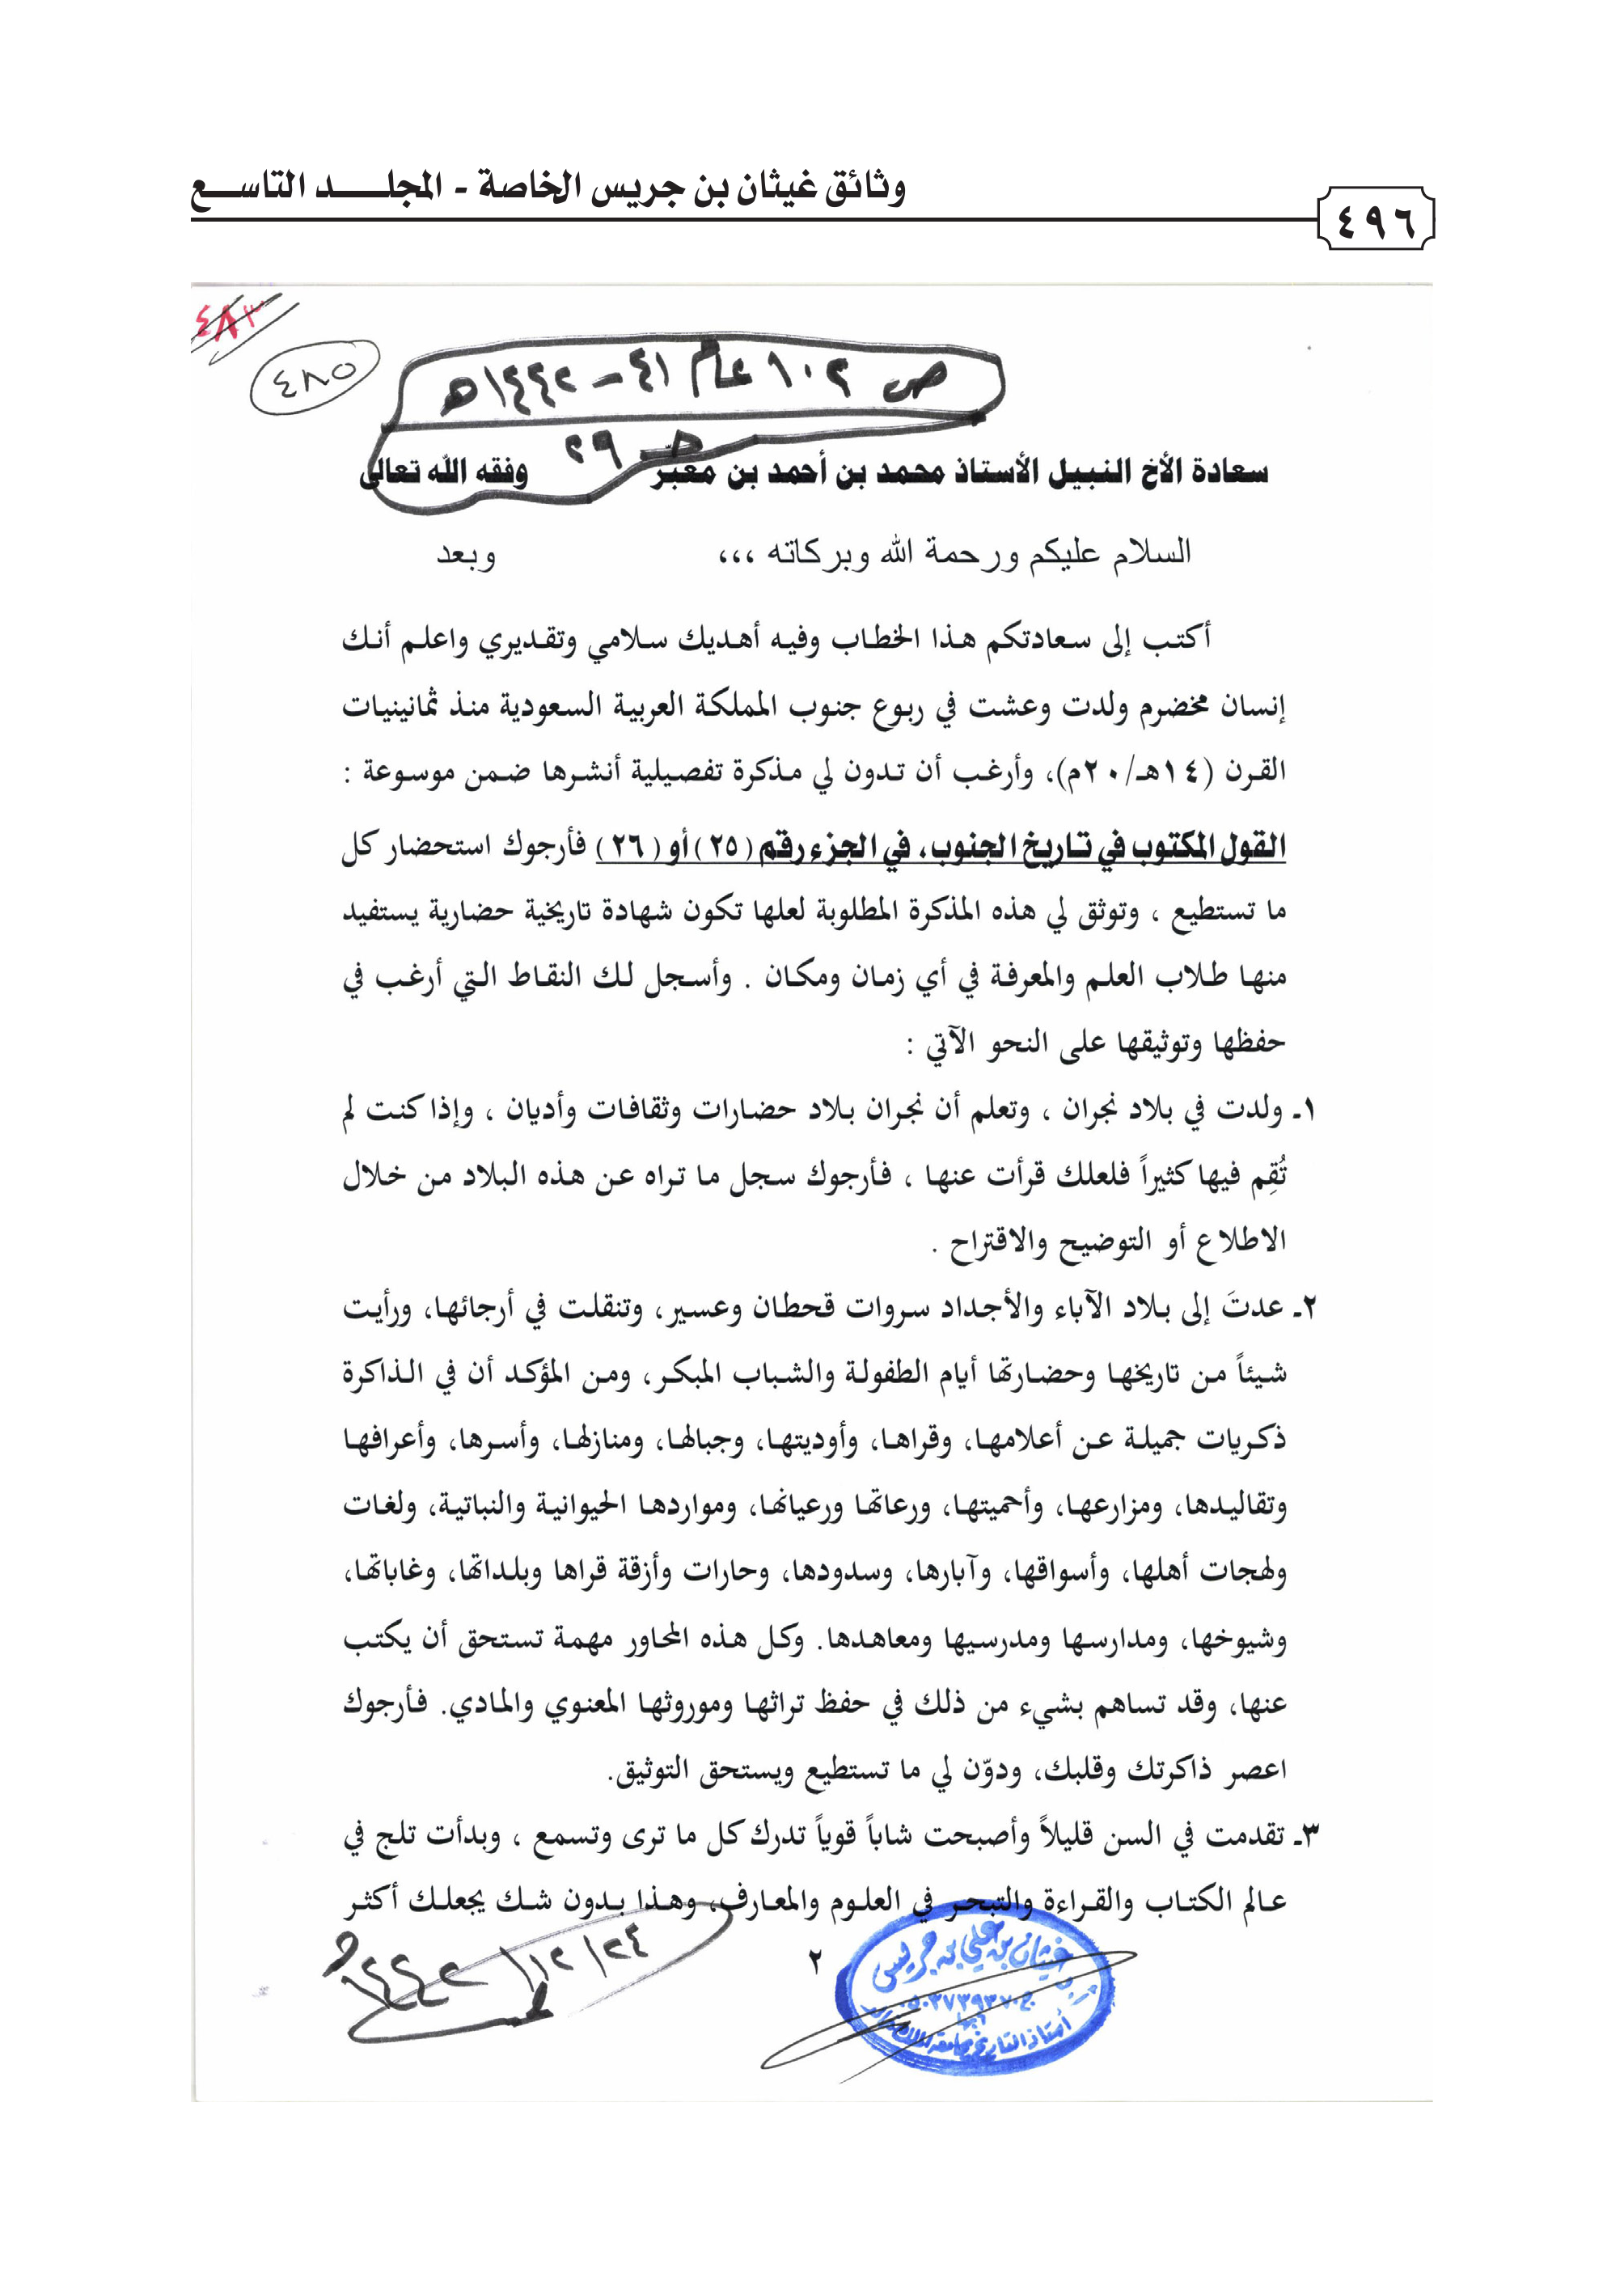 وثائق غيثان بن جريس الخاصة - المجلـــــد التاســـع
٤٩٦
٤٨٣
٤٨٥
ص ١٠٢ عام ٤١ – ١٤٤٢هـ
حـ ٢٩
سعادة الأخ النبيل الأستاذ محمد بن أحمد بن معبّر وفقه الله تعالى
السلام عليكم ورحمة الله وبركاته ،،، وبعد
أكتب إلى سعادتكم هذا الخطاب وفيه أهديك سلامي وتقديري واعلم أنك
إنسان مخضرم ولدت وعشت في ربوع جنوب المملكة العربية السعودية منذ ثمانينيات
القرن (١٤هـ/٢٠م)، وأرغب أن تدون لي مذكرة تفصيلية أنشرها ضمن موسوعة :
القول المكتوب في تاريخ الجنوب، في الجزء رقم (٢٥) أو (٢٦) فأرجوك استحضار كل
ما تستطيع ، وتوثق لي هذه المذكرة المطلوبة لعلها تكون شهادة تاريخية حضارية يستفيد
منها طلاب العلم والمعرفة في أي زمان ومكان . وأسجل لك النقاط التي أرغب في
حفظها وتوثيقها على النحو الآتي :
١ـ ولدت في بلاد نجران ، وتعلم أن نجران بلاد حضارات وثقافات وأديان ، وإذا كنت لم
تُقِم فيها كثيراً فلعلك قرأت عنها ، فأرجوك سجل ما تراه عن هذه البلاد من خلال
الاطلاع أو التوضيح والاقتراح .
٢ـ عدتَ إلى بلاد الآباء والأجداد سروات قحطان وعسير، وتنقلت في أرجائها، ورأيت
شيئاً من تاريخها وحضارتها أيام الطفولة والشباب المبكر، ومن المؤكد أن في الذاكرة
ذكريات جميلة عن أعلامها، وقراها، وأوديتها، وجبالها، ومنازلها، وأسرها، وأعرافها
وتقاليدها، ومزارعها، وأحميتها، ورعاتها ورعيانها، ومواردها الحيوانية والنباتية، ولغات
ولهجات أهلها، وأسواقها، وآبارها، وسدودها، وحارات وأزقة قراها وبلداتها، وغاباتها،
وشيوخها، ومدارسها ومدرسيها ومعاهدها. وكل هذه المحاور مهمة تستحق أن يكتب
عنها، وقد تساهم بشيء من ذلك في حفظ تراثها وموروثها المعنوي والمادي. فأرجوك
اعصر ذاكرتك وقلبك، ودوّن لي ما تستطيع ويستحق التوثيق.
٣ـ تقدمت في السن قليلاً وأصبحت شاباً قوياً تدرك كل ما ترى وتسمع ، وبدأت تلج في
عالم الكتاب والقراءة والتبحر في العلوم والمعارف، وهذا بدون شك يجعلك أكثر
٢
١٤٤٢/١٢/٢٤هـ
غيثان بن علي بن جريس
أستاذ التاريخ بجامعة الملك خالد